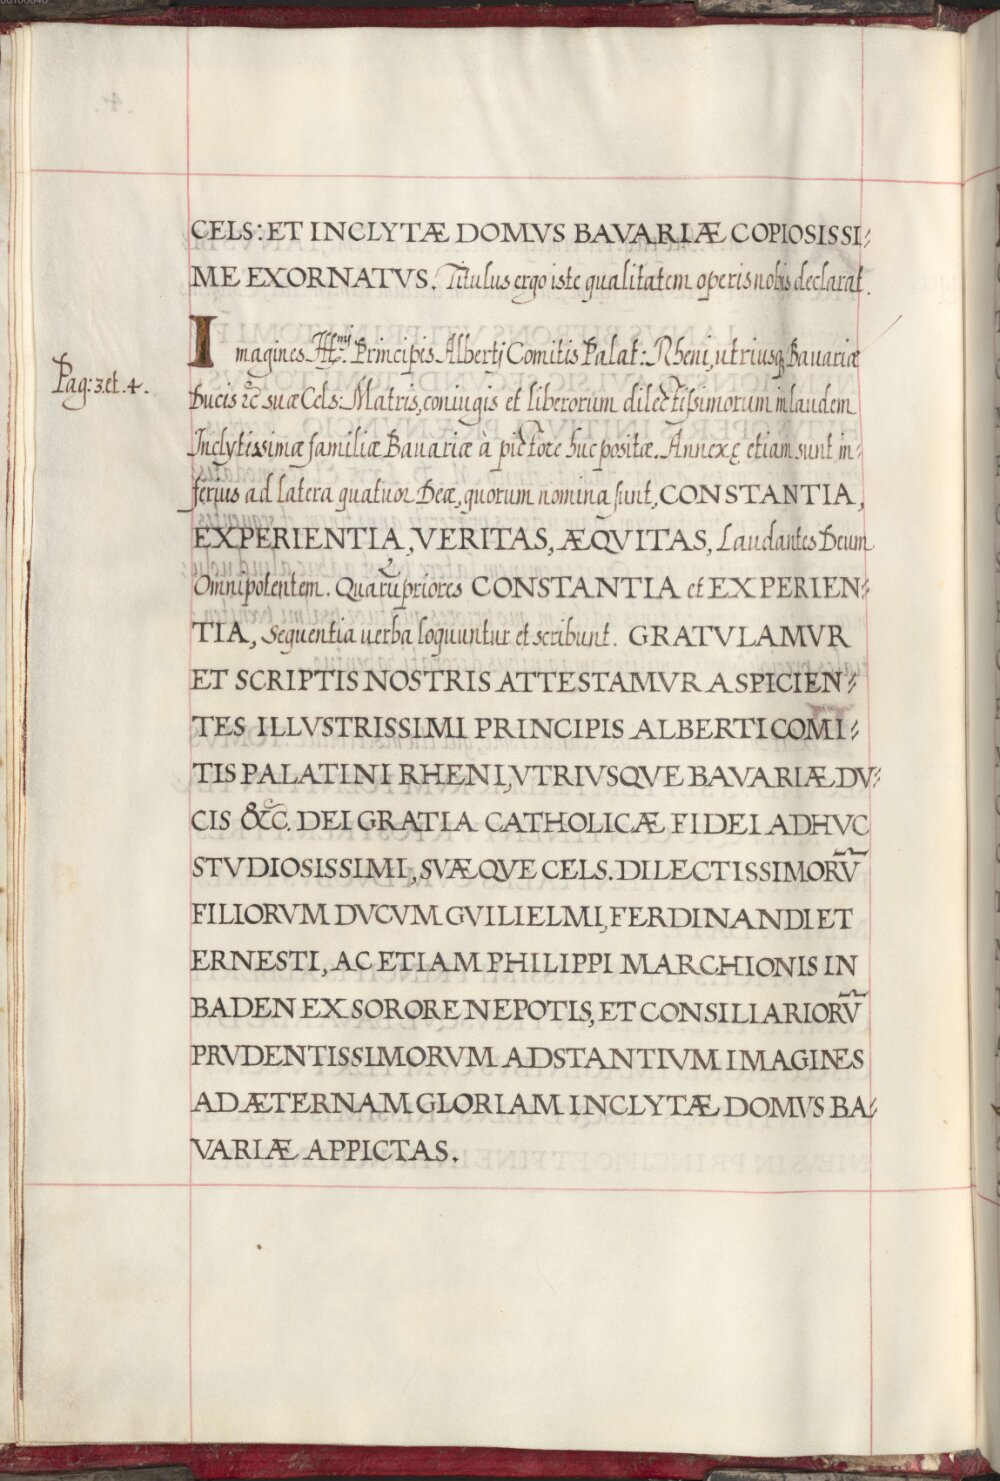 CELS: ET INCLYTÆ DOMVS BAVARIÆ COPIOSISSI⸗
ME EXORNATVS. Titulus ergo iste qualitatem operis nobis declarat.
Imagines Ill.mi Principis Albertj Comitis Palat: Rheni, utriusq Bavariæ
Pag: 3. et. 4.
Ducis &c suæ Cels: Matris, coniugis et liberorum dilectissimorum in laudem
Inclytissimæ familiæ Bavariæ à pictore huc positæ. Annexę etiam sunt in⸗
ferius ad latera quatuor Deæ, quorum nomina sunt, CONSTANTIA,
EXPERIENTIA, VERITAS, ÆQVITAS, Laudantes Deum
Omnipotentem. Quarũ priores CONSTANTIA et EXPERIEN⸗
TIA, sequentia verba loquuntur et scribunt. GRATVLAMVR
ET SCRIPTIS NOSTRIS ATTESTAMVR ASPICIEN⸗
TES ILLVSTRISSIMI PRINCIPIS ALBERTI COMI⸗
TIS PALATINI RHENI, VTRIVSQVE BAVARIÆ DV⸗
CIS &C. DEI GRATIA CATHOLICÆ FIDEI ADHVC
STVDIOSISSIMI, SVÆQVE CELS. DILECTISSIMORṼ
FILIORVM DVCVM GVILIELMI, FERDINANDI ET
ERNESTI, AC ETIAM PHILIPPI MARCHIONIS IN
BADEN EX SORORE NEPOTIS, ET CONSILIARIORṼ
PRVDENTISSIMORVM ADSTANTIVM IMAGINES
AD ÆTERNAM GLORIAM INCLYTÆ DOMVS BA⸗
VARIÆ APPICTAS.